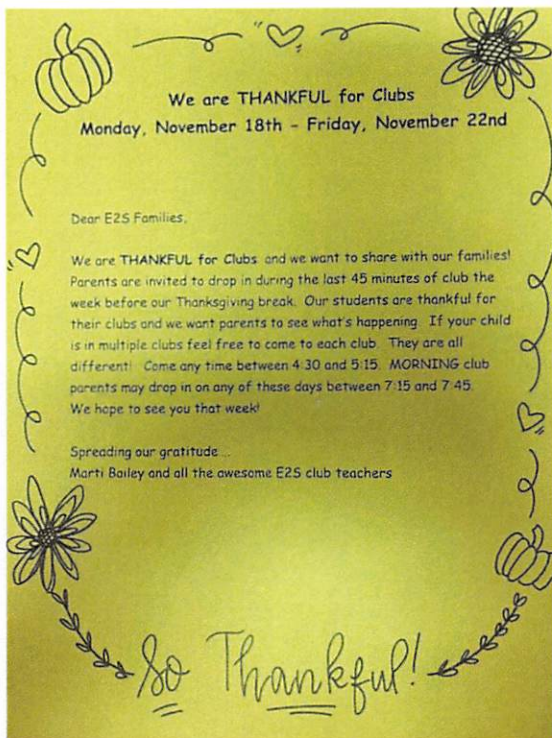 We are THANKFUL for Clubs
Monday, November 18th - Friday, November 22nd
Dear E2S Families,
We are THANKFUL for Clubs and we want to share with our families!
Parents are invited to drop in during the last 45 minutes of club the
week before our Thanksgiving break. Our students are thankful for
their clubs and we want parents to see what's happening. If your child
is in multiple clubs feel free to come to each club. They are all
different! Come any time between 4:30 and 5:15. MORNING club
parents may drop in on any of these days between 7:15 and 7:45.
We hope to see you that week!
Spreading our gratitude...
Marti Bailey and all the awesome E2S club teachers
So Thankful!